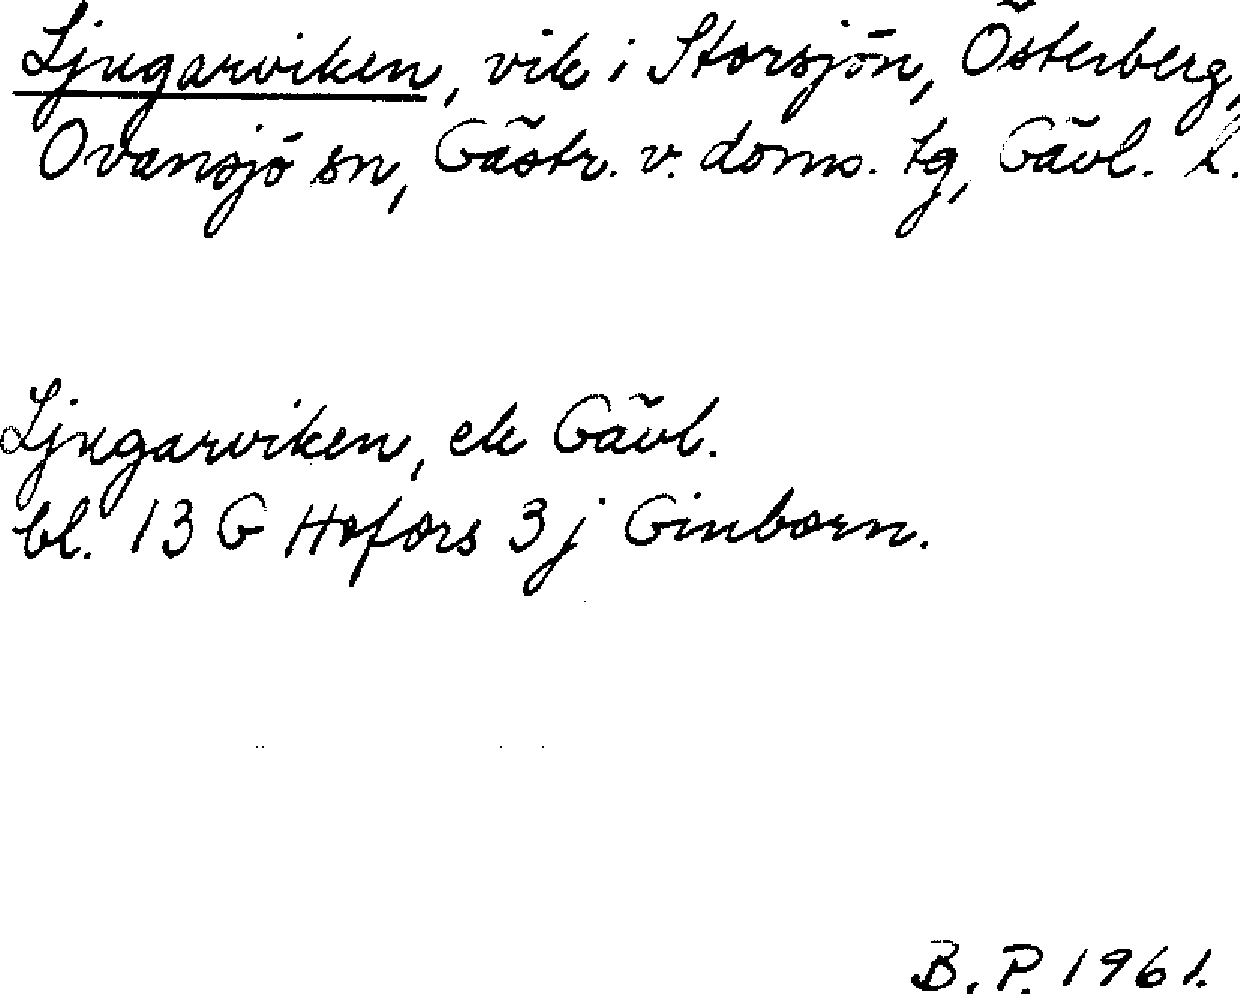 Ljugarviken, vik i Storsjön, Österberg,
Ovansjö sn, Gästr. v. doms. tg, Gävl. l.
Ljugarviken, ek Gävl.
bl. 13 G Hofors 3j Ginborn.
B.P. 1961.